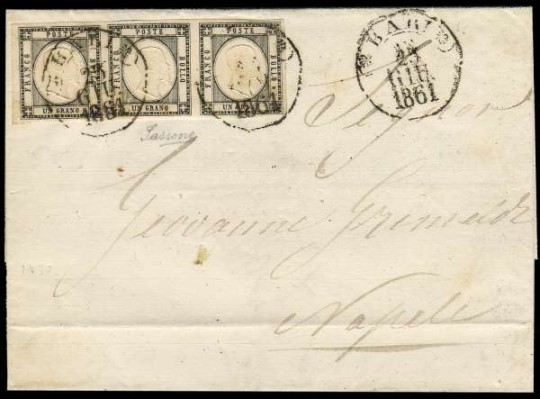 POSTE
FRANCO
BOLLO
UN GRANO
POSTE
FRANCO
BOLLO
UN GRANO
POSTE
FRANCO
BOLLO
BARI
GIU
1861
BARI
GIU
1861
Giovanni Grimaldi
Napoli